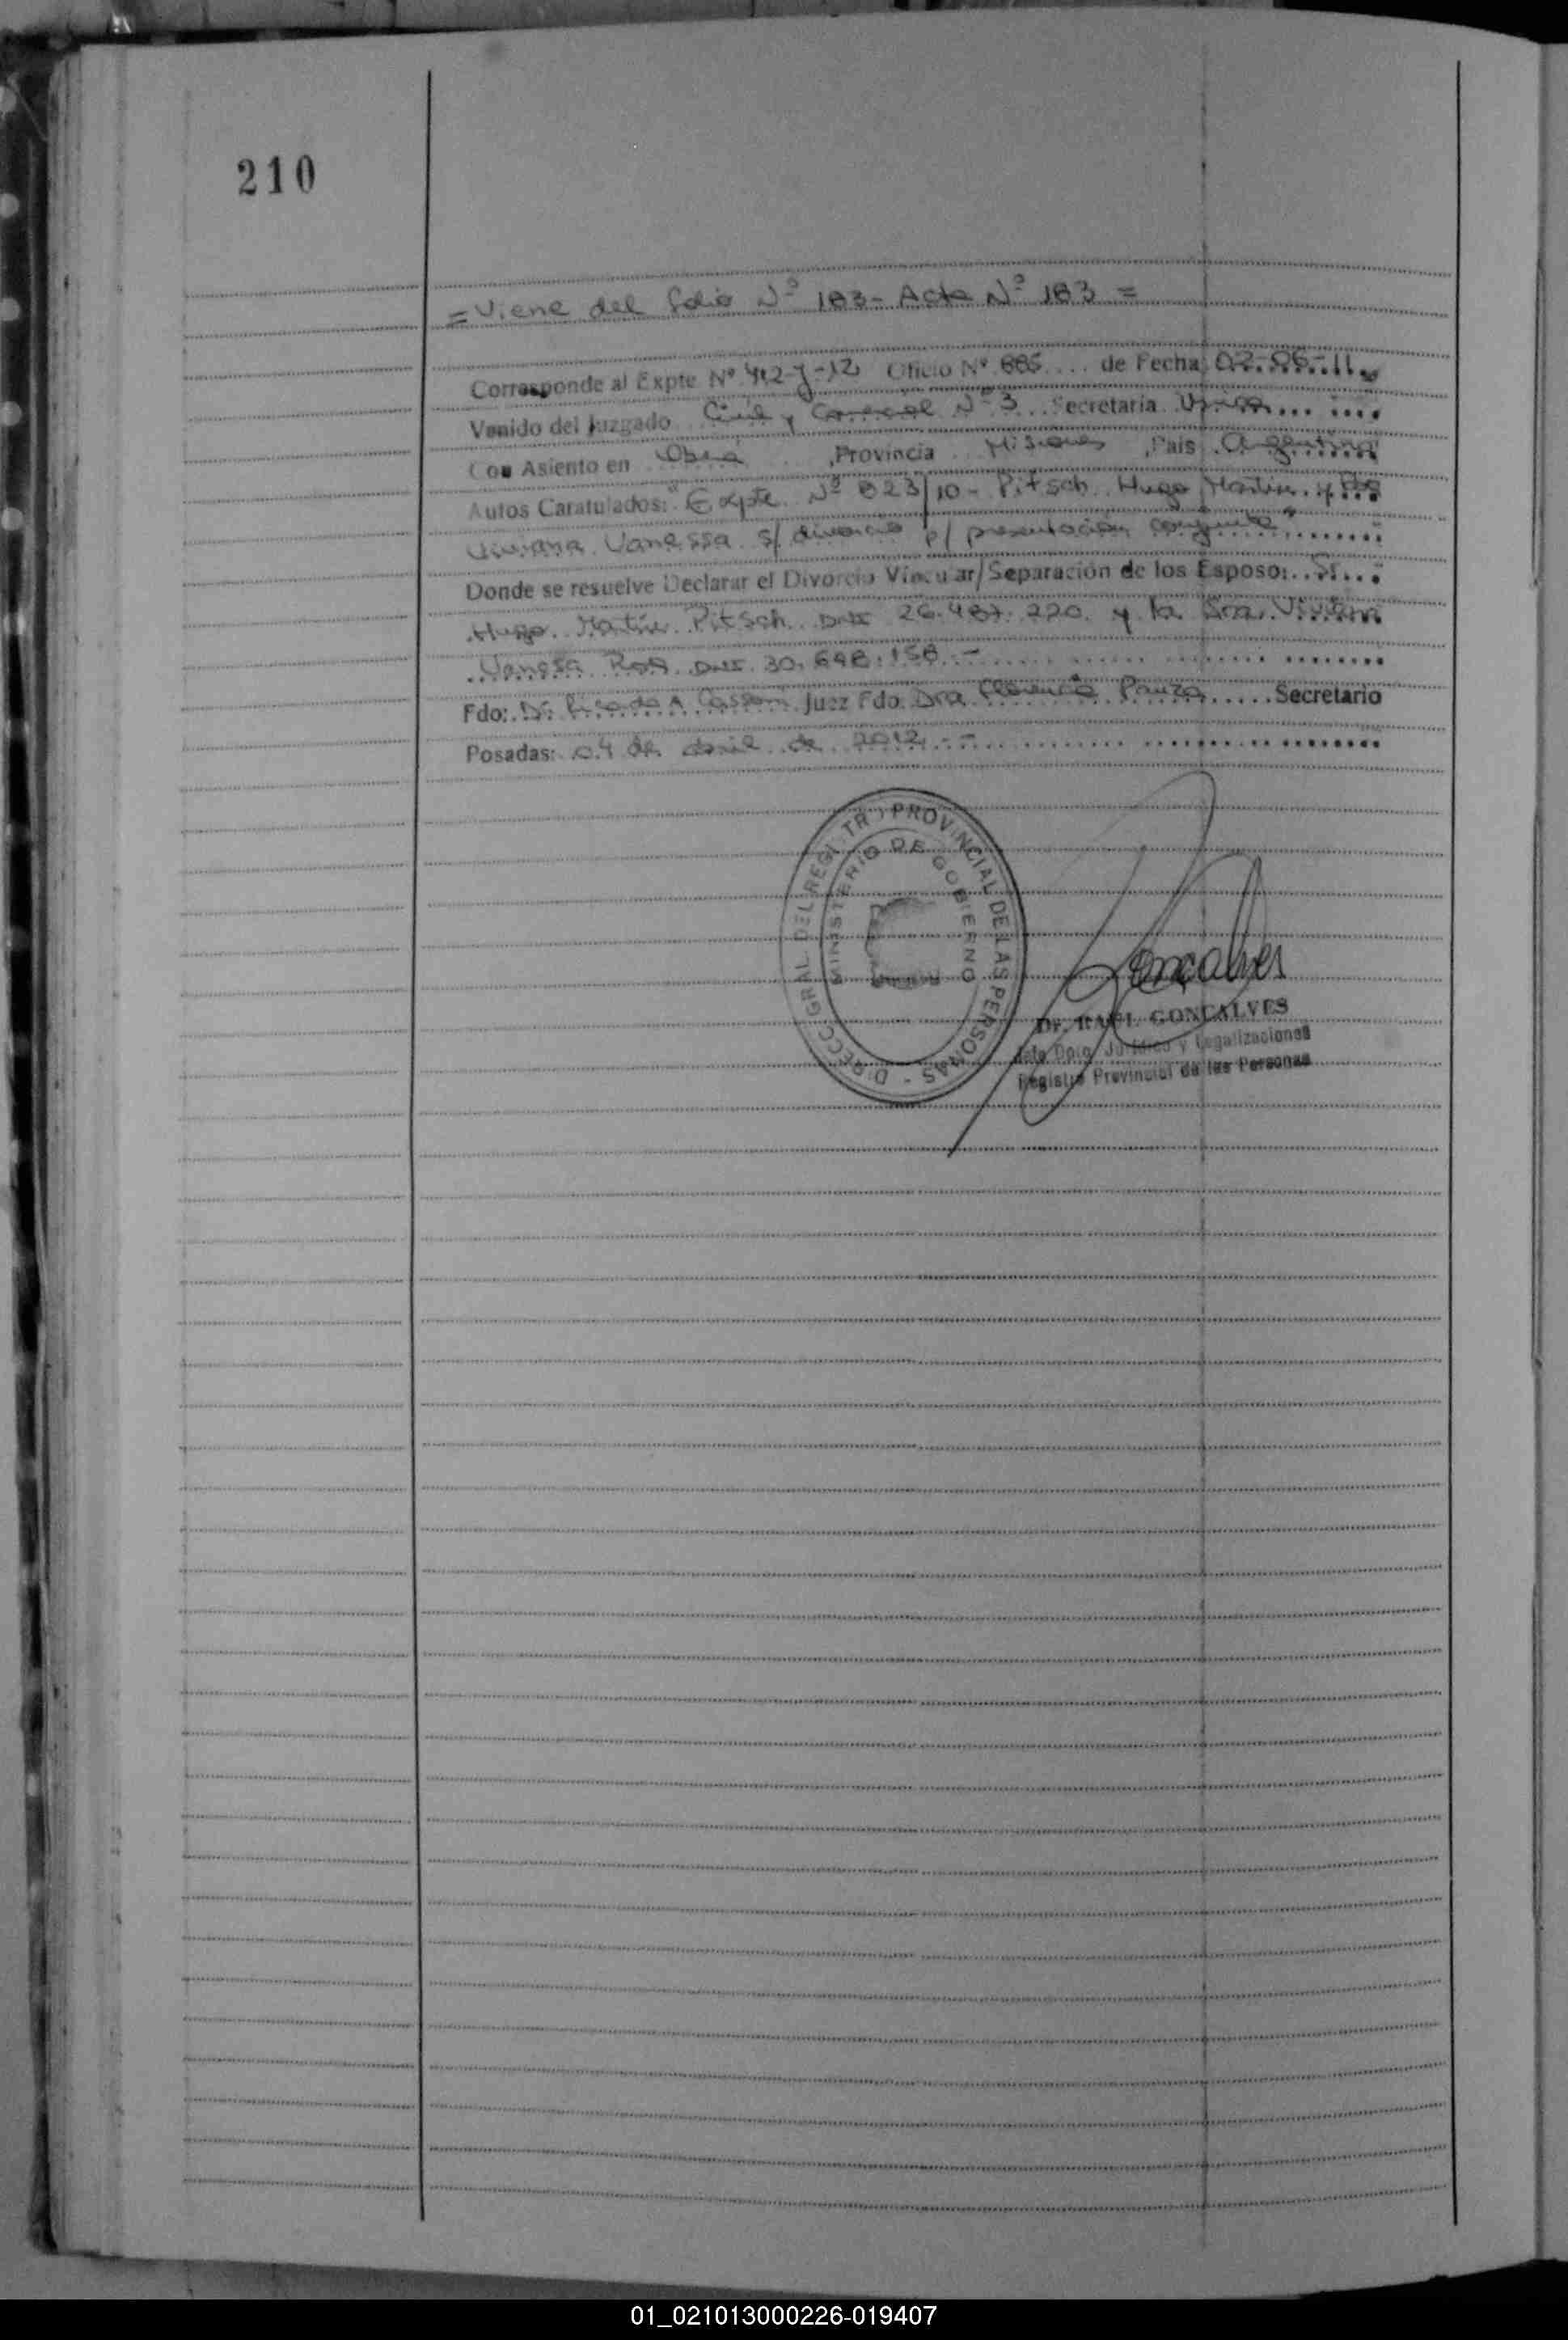 210
= Viene del folio Nº 183 - Acta Nº 183 =
Corresponde al Expte Nº 412-J-12 Oficio Nº 885 .... de Fecha: 02-06-11.
Venido del Juzgado Civil y Comercial Nº 3 Secretaría Unica
Con Asiento en Oberá , Provincia Misiones , País Argentina
Autos Caratulados: "Expte Nº 823/10 - Pitsch Hugo Martin y
Viviana Vanessa s/ divorcio p/ presentación conjunta"
Donde se resuelve Declarar el Divorcio Vincular/Separación de los Esposo: Sr
Hugo Martin Pitsch DNI 26.487.220 y la Sra. Viviana
Vanesa DNI 30.698.158.-
Fdo: Dr Ricardo A Juez Fdo. Dra Florencia Secretario
Posadas: 04 de abril de 2012.-
DIRECC. GRAL. DEL REGISTRO PROVINCIAL DE LAS PERSONAS -
MINISTERIO DE GOBIERNO
Goncalves
Dr. RAUL GONCALVES
Jefe Dpto. Jurídico y Legalizaciones
Registro Provincial de las Personas
01_021013000226-019407